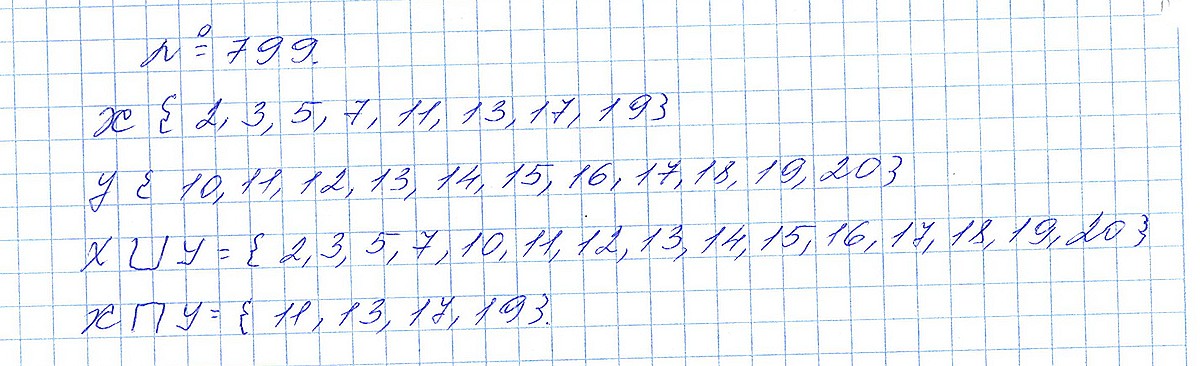 № 799.
X { 2, 3, 5, 7, 11, 13, 17, 19}
У { 10, 11, 12, 13, 14, 15, 16, 17, 18, 19, 20}
X ∪ У = { 2, 3, 5, 7, 10, 11, 12, 13, 14, 15, 16, 17, 18, 19, 20}
X ∩ У = { 11, 13, 17, 19}.